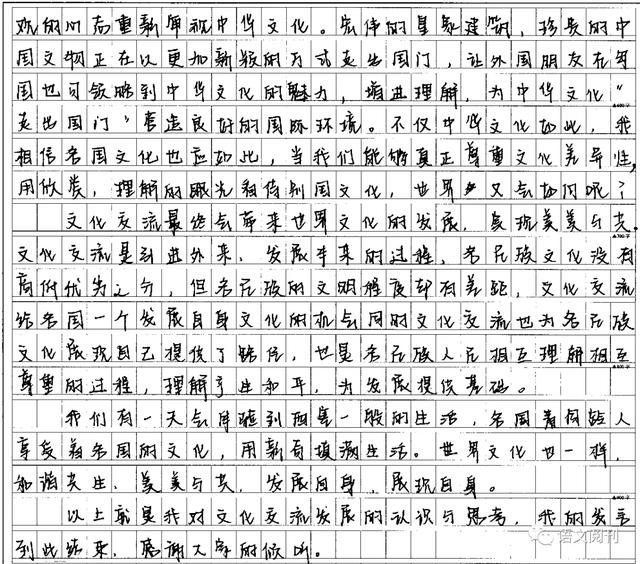 欢的心态重新审视中华文化。宏伟的皇家建筑，珍贵的中
国文物正在以更加新颖的方式走出国门，让外国朋友在每
国也可领略到中华文化的魅力，增进理解，为中华文化“
走出国门”营造良好的国际环境。不仅中华文化如此，我
相信各国文化也应如此，当我们能够真正尊重文化差异性，
用欣赏，理解的眼光看待别国文化，世界又会如何呢？
文化交流最终会带来世界文化的发展，实现美美与共。
文化交流是引进外来，发展本来的过程，各民族文化没有
高低优劣之分，但各民族的文明程度却有差距，文化交流
给各国一个发展自身文化的机会同时文化交流也为各民族
文化展现自己提供了路径，也是各民族人民相互理解相互
尊重的过程，理解产生和平，为发展提供基础。
我们有一天会厌倦到西是一般的生活，各国青年人
享受着各国的文化，用新奇填满生活。世界文化也一样，
和谐共生，美美与共，发展自身，展现自身。
以上就是我对文化交流发展的认识与思考，我的发言
到此结束，感谢大家的倾听。
语文阅刊